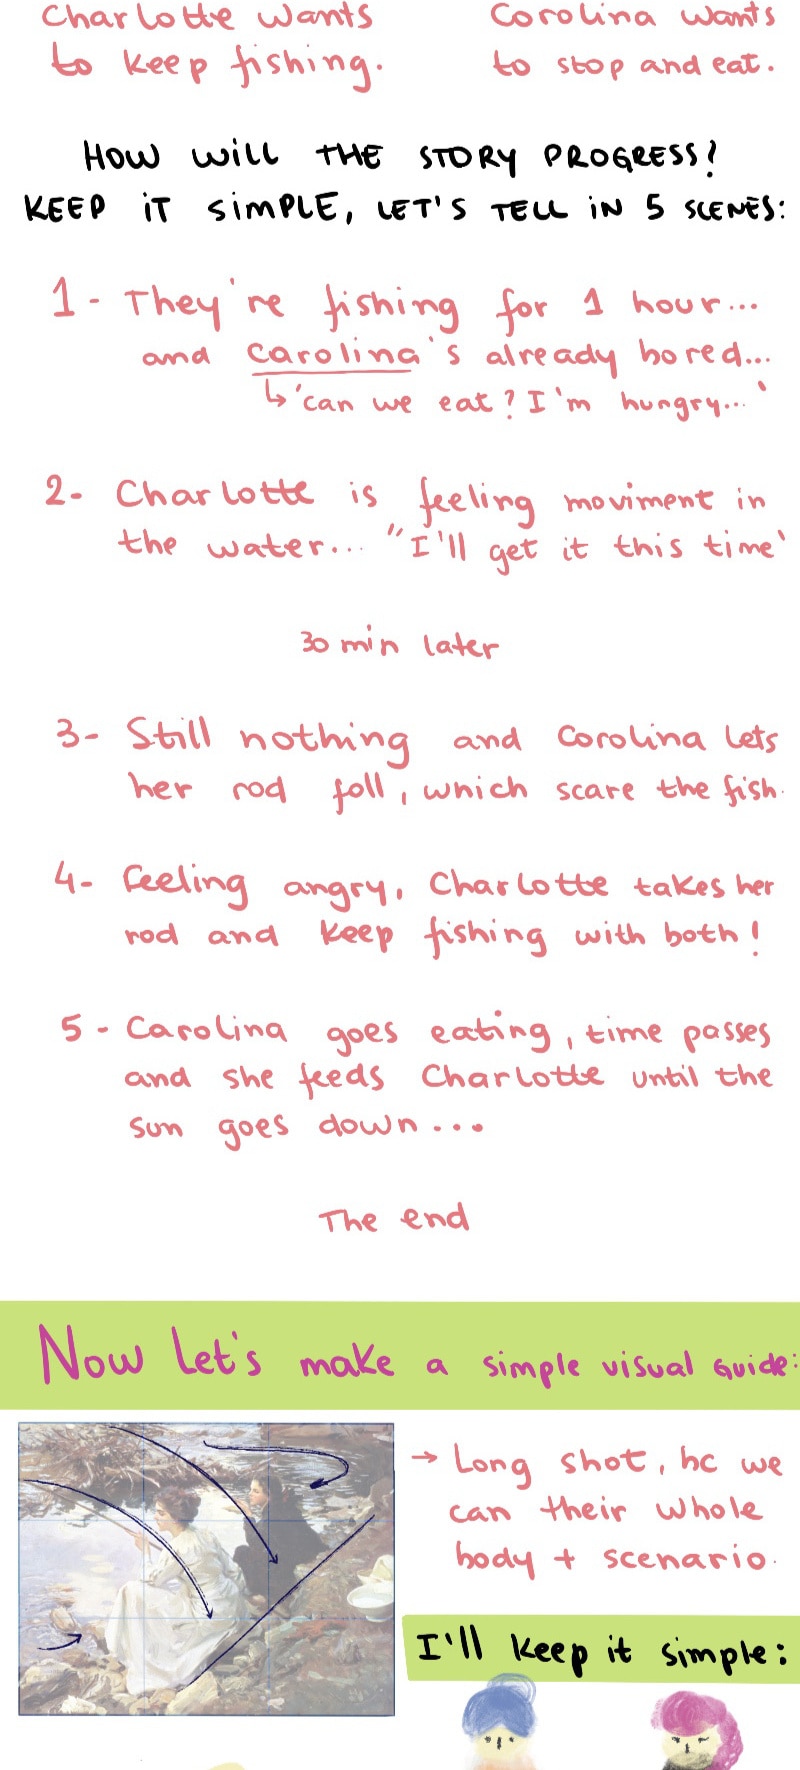 Charlotte wants
to keep fishing.
Corolina wants
to stop and eat.
HOW WILL THE STORY PROGRESS?
KEEP IT SIMPLE, LET'S TELL IN 5 SCENES:
1- They're fishing for 1 hour...
and carolina's already bored...
↳'can we eat? I'm hungry...'
2- Charlotte is feeling moviment in
the water... "I'll get it this time'
30 min later
3- Still nothing and Corolina lets
her rod foll, which scare the fish.
4- Feeling angry, Charlotte takes her
rod and keep fishing with both!
5- Carolina goes eating, time passes
and she feeds Charlotte until the
sun goes down...
The end
Now Let's make a simple visual Guide:
→ Long shot, bc we
can their whole
body + scenario.
I'll keep it simple: